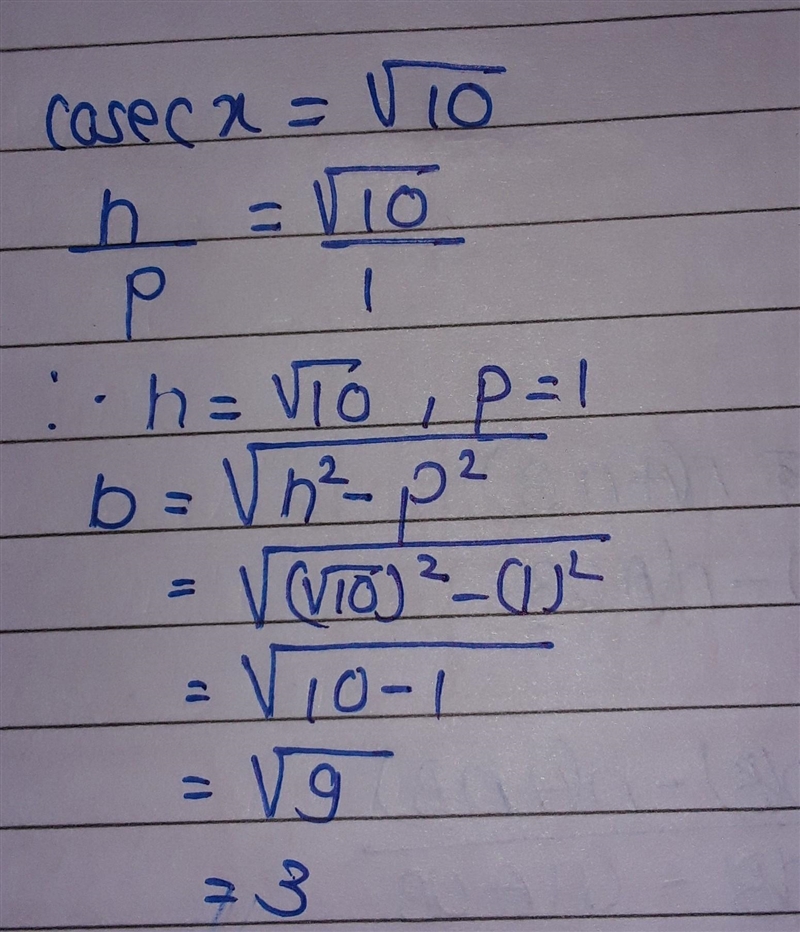 cosec x = √10
h/p = √10/1
∴ h = √10 , p = 1
b = √(h² - p²)
= √((√10)² - (1)²)
= √(10 - 1)
= √9
= 3